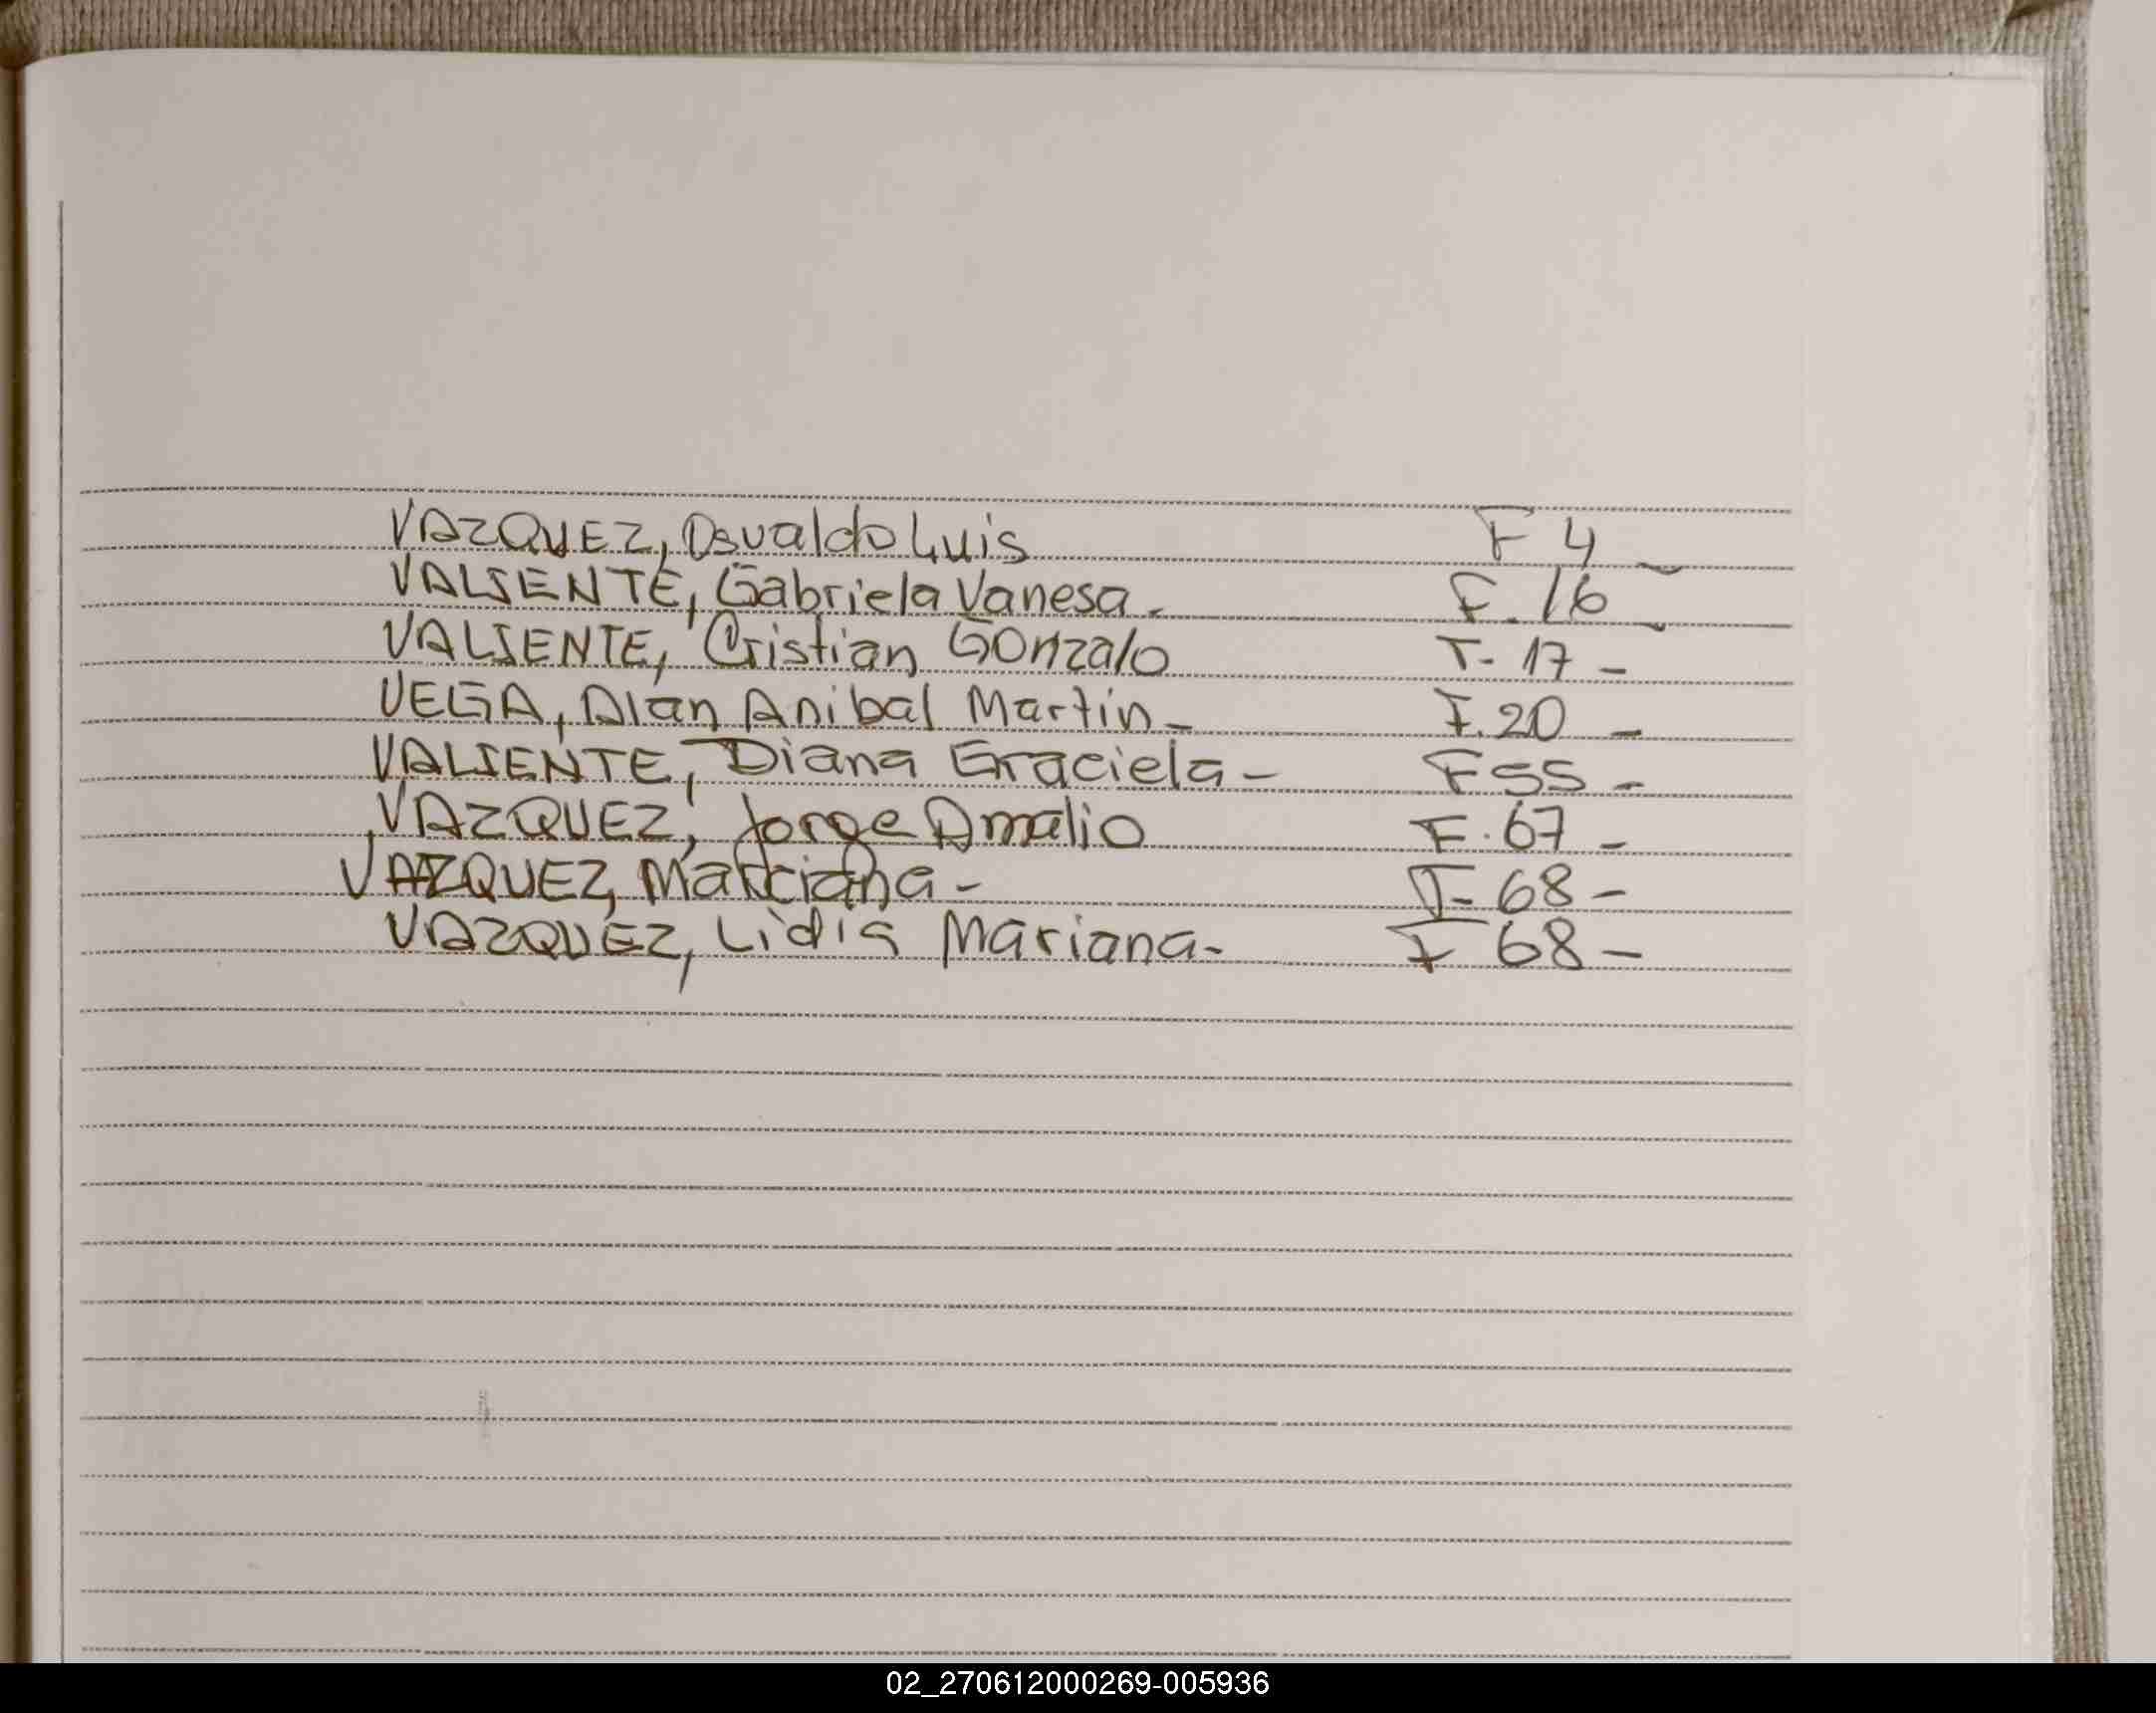 VAZQUEZ, Osvaldo Luis F 4 -
VALIENTE, Gabriela Vanesa - F. 16 -
VALIENTE, Cristian Gonzalo F. 17 -
VEGA, Alan Anibal Martin - F. 20 -
VALIENTE, Diana Graciela - F 55 -
VAZQUEZ, Jorge Amalio F. 67 -
VAZQUEZ, Marciana - F 68 -
VAZQUEZ, Lidia Mariana - F 68 -
02_270612000269-005936